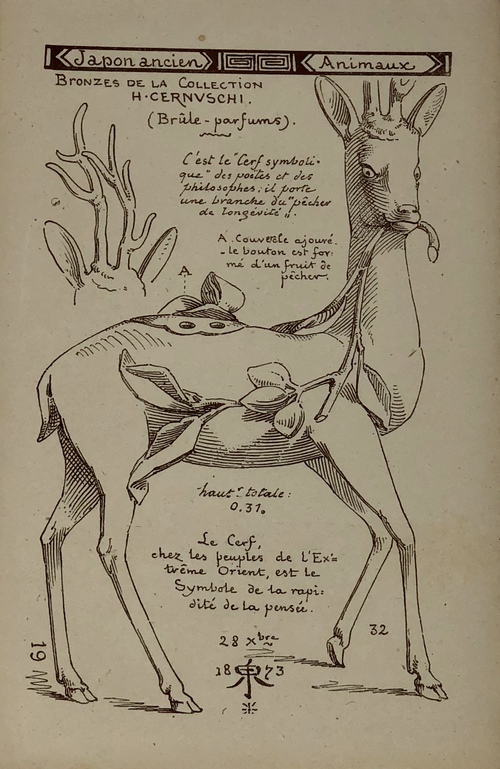 Japon ancien
Animaux
BRONZES DE LA COLLECTION
H·CERNVSCHI.
(Brûle-parfums).
C'est le "Cerf symboli-
que" des poètes et des
philosophes; il porte
une branche du "pêcher
de longévité".
A. Couvercle ajouré.
- le bouton est for-
mé d'un fruit de
pêcher.
A
haut.r totale:
0.31.
Le Cerf,
chez les peuples de l'Ex=
trême Orient, est le
Symbole de la rapi:
dité de la pensée.
28 Xbre
1873
32
19